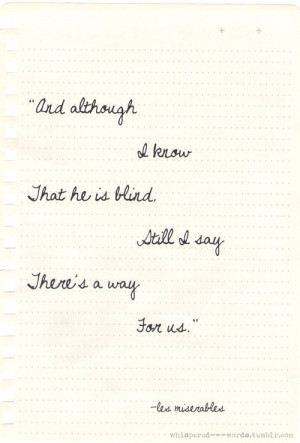 "And although
I know
That he is blind,
Still I say
There's a way
For us."
-les miserables
whispered---words.tumblr.com